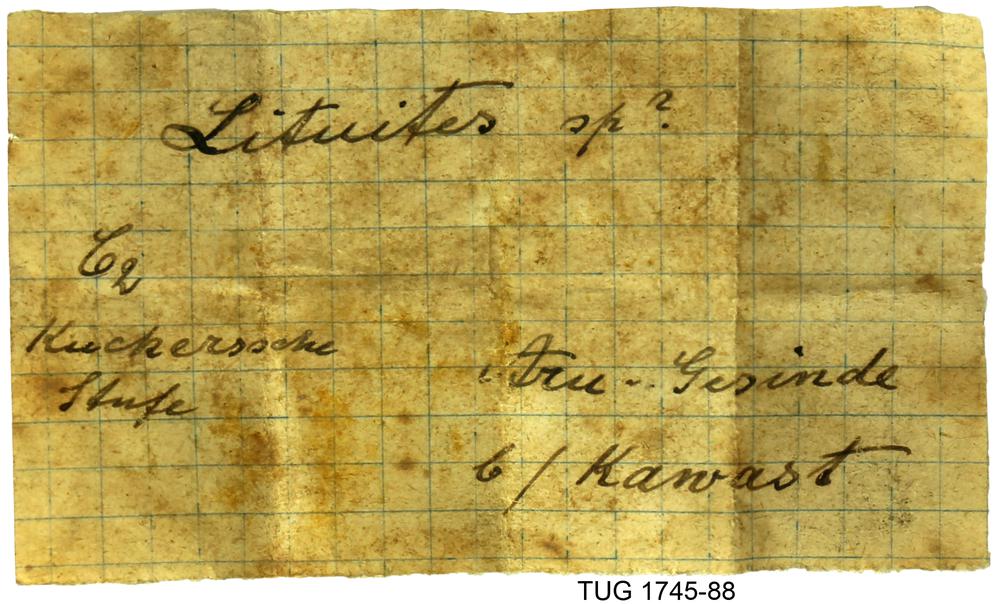 Lituites sp?
C2
Kuckerssche
Stufe
Aru-Gesinde
b/ Kawast
TUG 1745-88